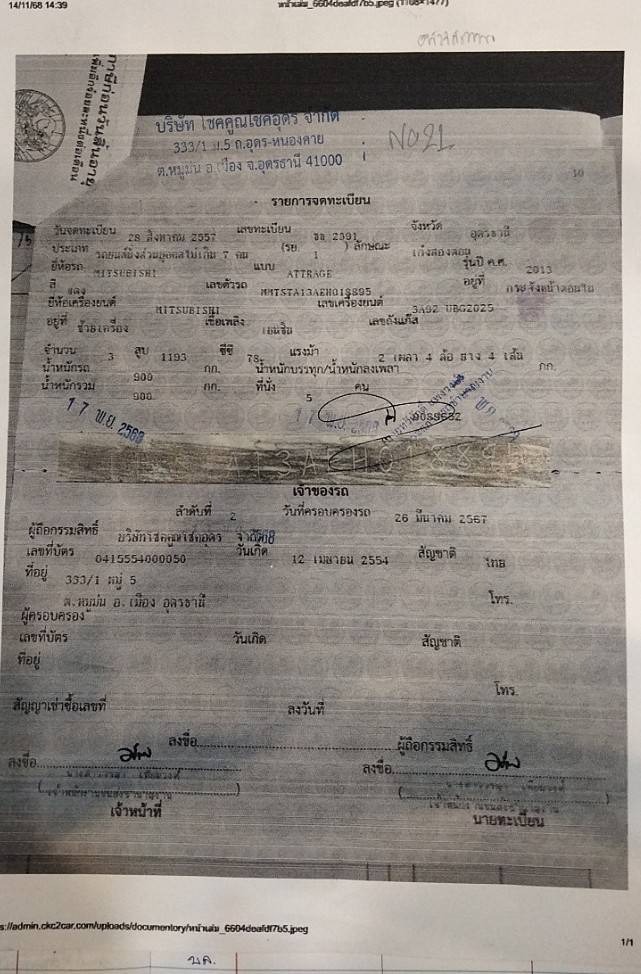 14/11/68 14:39
หน้าเล่ม_6604deafdf7b5.jpeg (1108×1477)
บริษัท โชคคูณโชคอุดร จำกัด
333/1 ม.5 ถ.อุดร-หนองคาย
ต.หมูม่น อ.เมือง จ.อุดรธานี 41000
NO21
10
รายการจดทะเบียน
วันจดทะเบียน 28 สิงหาคม 2557 เลขทะเบียน 2591 จังหวัด อุดรธานี
ประเภท รถยนต์นั่งส่วนบุคคลไม่เกิน 7 คน (รย. 1 ) ลักษณะ เก๋งสองตอน
ยี่ห้อรถ MITSUBISHI แบบ ATTRAGE รุ่นปี ค.ศ. 2013
สี แดง เลขตัวรถ MMTSTA13AEH018895 อยู่ที่
ยี่ห้อเครื่องยนต์ MITSUBISHI เลขเครื่องยนต์ 3A92 UBG2025
อยู่ที่ ซ้ายเครื่อง เชื้อเพลิง เบนซิน เลขถังแก๊ส
จำนวน 3 สูบ 1193 ซีซี 78 แรงม้า 2 เพลา 4 ล้อ ยาง 4 เส้น
น้ำหนักรถ 900 กก. น้ำหนักบรรทุก/น้ำหนักลงเพลา กก.
น้ำหนักรวม 900 กก. ที่นั่ง 5 คน
17 พ.ย. 2560
เจ้าของรถ
ลำดับที่ 2 วันที่ครอบครองรถ 26 มีนาคม 2567
ผู้ถือกรรมสิทธิ์ บริษัทโชคคูณโชคอุดร จำกัด
เลขที่บัตร 0415554000050 วันเกิด 12 เมษายน 2554 สัญชาติ ไทย
ที่อยู่ 333/1 หมู่ 5
ต.หมูม่น อ.เมือง อุดรธานี โทร.
ผู้ครอบครอง
เลขที่บัตร วันเกิด สัญชาติ
ที่อยู่
โทร.
สัญญาเช่าซื้อเลขที่ ลงวันที่
ลงชื่อ ผู้ถือกรรมสิทธิ์
ลงชื่อ ลงชื่อ
เจ้าหน้าที่ นายทะเบียน
s://admin.ckc2car.com/uploads/documentory/หน้าเล่ม_6604deafdf7b5.jpeg
1/1